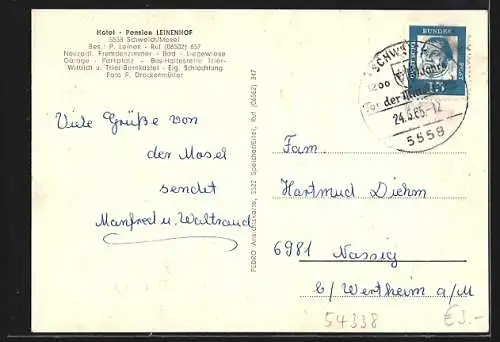 Hotel - Pension LEINENHOF
5558 Schweich/Mosel
Bes.: P. Leinen - Ruf (06502) 657
Neuzeitl. Fremdenzimmer - Bad - Liegewiese
Garage - Parkplatz - Bus-Haltestelle Trier-
Wittlich u. Trier-Bernkastel - Eig. Schlachtung
Foto P. Drockenmüller
Viele Grüße von
der Mosel
sendet
Manfred u. Waltraud
PEDRO Ansichtskarte, 5522 Speicher/Eifel, Ruf (06562) 347
DEUTSCHE BUNDESPOST
15
SCHWEICH
1200 Jahre
Tor der
24.5.65.-12
5558
Fam.
Hartmud Diehm
6981 Nassig
b/ Wertheim a/M
54338
€3.-